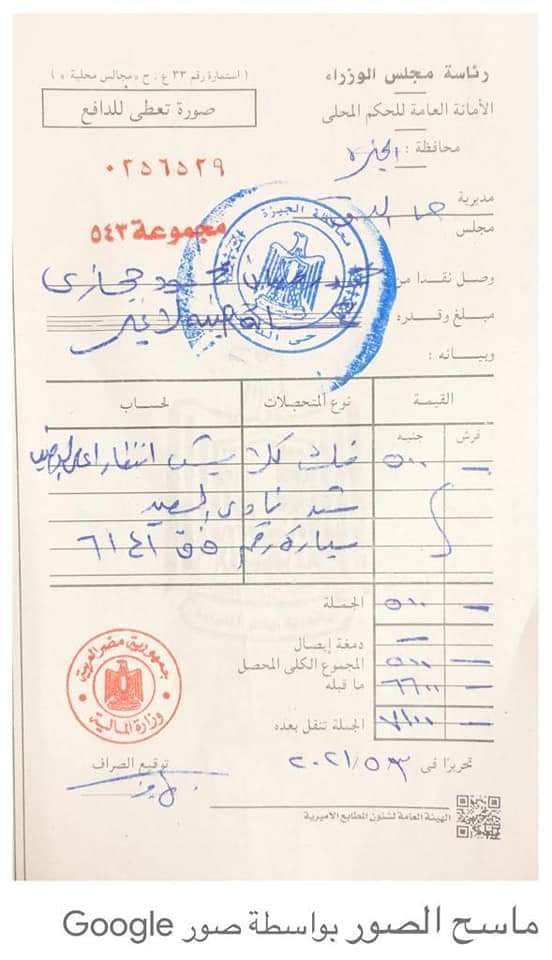 رئاسة مجلس الوزراء
( استمارة رقم ٣٣ ع . ح « مجالس محلية » )
الأمانة العامة للحكم المحلى
صورة تعطى للدافع
محافظة : الجيزة
٠٢٥٦٥٢٩
مديرية
مجلس
محافظة الجيزة
مجموعة ٥٤٣
وصل نقدا من حجازى
مبلغ وقدره
وبيانه :
القيمة
نوع المتحصلات
لحساب
قرش
جنيه
٥٠٠ فك كلابش انتظار أعلى
نادى الصيد
سيارة رقم ٦١٤١
الجملة ٥٠٠
دمغة إيصال
المجموع الكلى المحصل ٥٠٠
ما قبله ٦٦٠٠
الجملة تنقل بعده ٧١٠٠
جمهورية مصر العربية
وزارة المالية
تحريرًا فى ٢٠٢١/٥/٣
توقيع الصراف
الهيئة العامة لشئون المطابع الاميرية
ماسح الصور بواسطة صور Google